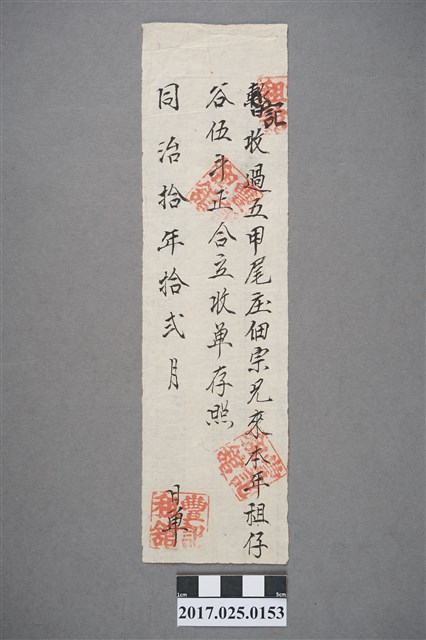 暫記收過五甲尾庄佃宗兄來本年租仔
谷伍斗正合立收单存照
同治拾年拾弍月 日单
豐記
1cm 5cm
2017.025.0153